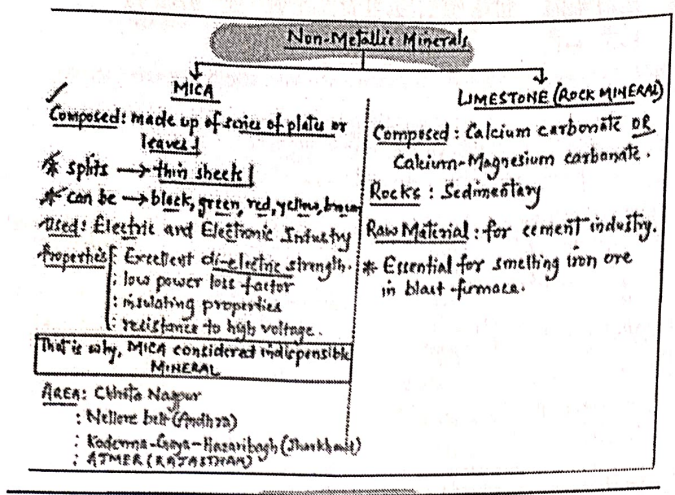 Non-Metallic Minerals
MICA
Composed: made up of series of plates or
leaves
* splits → thin sheets
* can be → black, green, red, yellow, brown
Used: Electric and Electronic Industry
Properties: Excellent di-electric strength.
: low power loss factor
: insulating properties
: resistance to high voltage.
That is why, MICA considered indispensible
MINERAL
AREA: Chhota Nagpur
: Nellore belt (Andhra)
: Koderma-Gaya-Hazaribagh (Jharkhand)
: AJMER (RAJASTHAN)
LIMESTONE (ROCK MINERAL)
Composed: Calcium carbonate OR
Calcium-Magnesium carbonate.
Rocks: Sedimentary
Raw Material: for cement industry.
* Essential for smelting iron ore
in blast-furnace.